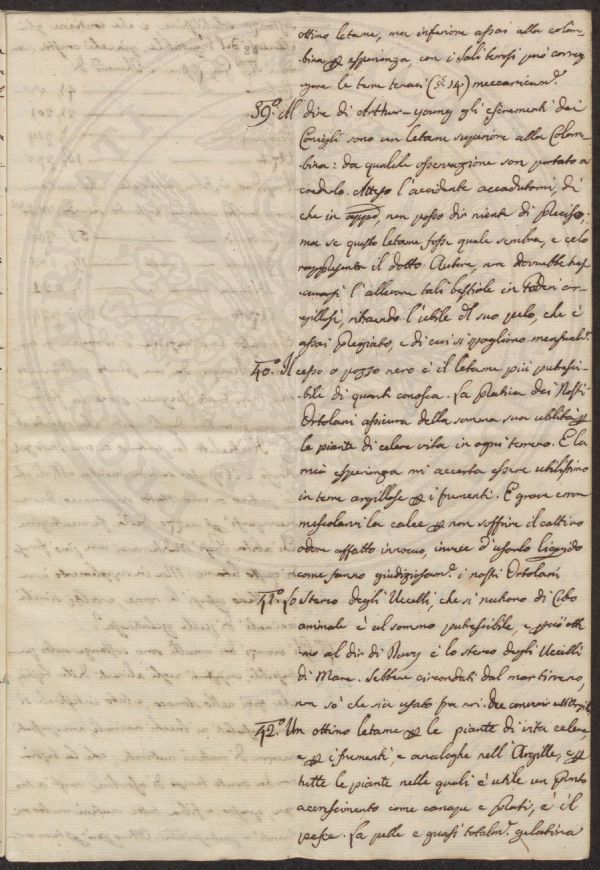 ottimo letame, ma inferiore assai alla colom-
bina per esperienza, con i sali terrosi può correg-
gere le terre tenaci (§. 14) meccanicam.e
39.° Al dire di Arthur-young gli escrementi dei
Conigli sono un letame superiore alla Colom-
bina: da qualche osservazione son portato a
crederlo. Atteso l'accidente accadutomi, di
che in appo, non posso dir niente di preciso;
ma se questo letame fosse quale sembra, e celo
rappresenta il dotto Autore, non dovrebbe tras-
curarsi l'allevare tali bestiole in ar-
gillosi, ritraendo l'utile del suo pelo, che è
assai pregiato, e di cui si spogliono mensualm.e
40.° Il cesso o pozzo nero è il letame più putresci-
bile di quanti conosca. La pratica dei Nostri
Ortolani assicura della somma sua utilità per
le piante di celere vita in ogni terreno. E la
mia esperienza mi accerta essere utilissimo
in terre argillose per i frumenti. È grave errore
mescolarvi la calce per non soffrire il cattivo
odore affatto innocuo, invece d'usarlo liquido
come fanno giudiziosam.e i nostri Ortolani
41.° Lo sterco degli Uccelli, che si nutrono di Cibo
animale è al sommo putrescibile, e può otti-
mo al dir di Davy è lo sterco degli Uccelli
di Mare. Sebbene circondati dal mar tirreno,
non sò che sia usato fra noi.
42.° Un ottimo letame per le piante di vita celere
e per i frumenti e analoghe nell'Argille, e per
tutte le piante nelle quali è utile un pronto
accrescimento come canape e prati, è il
pesce. La pelle è quasi totalm.e gelatina